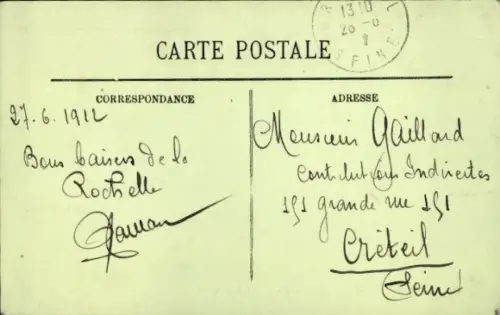 13 10
26 -6
CARTE POSTALE
CORRESPONDANCE
ADRESSE
27.6.1912
Bons baisers de la
Rochelle
Monsieur Gaillard
Contributions Indirectes
151 grande rue 151
Créteil
Seine